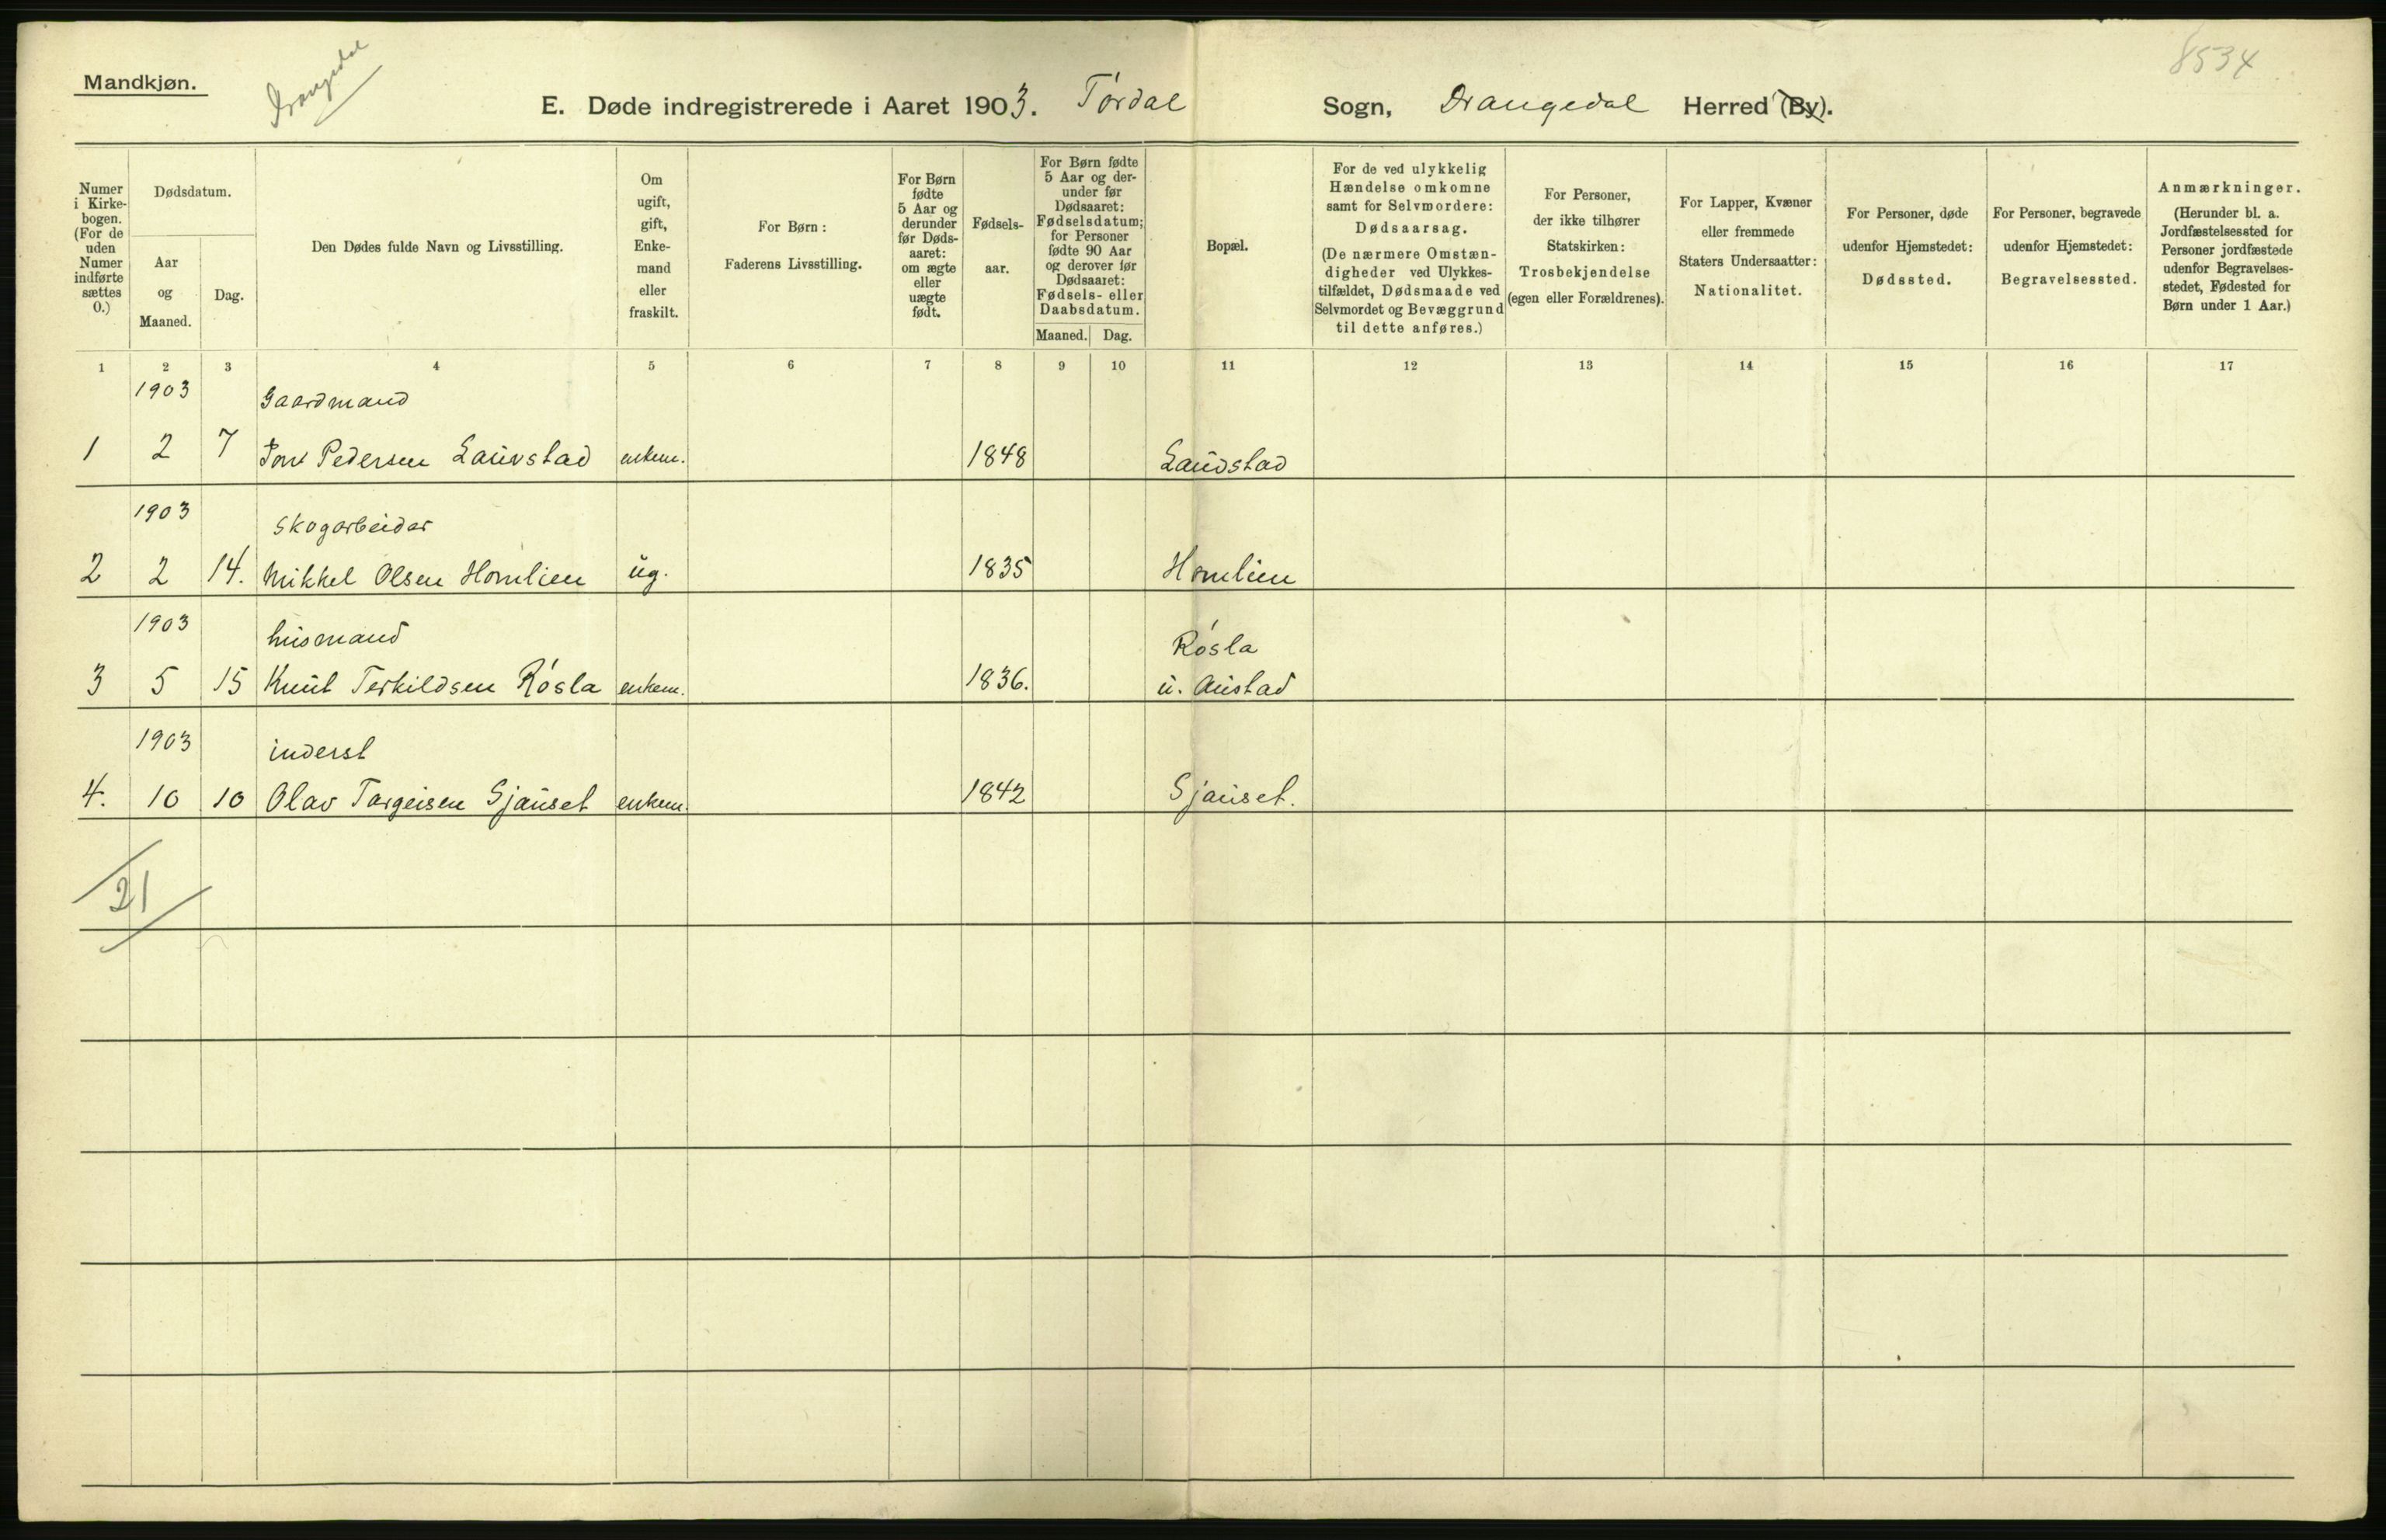 Mandkjøn.
Drangedal
8534
E. Døde indregistrerede i Aaret 1903. Tórdal Sogn, Drangedal Herred (By).
Numer i Kirkebogen. (For de uden Numer indførte sættes 0.)
Dødsdatum.
Aar og Maaned.
Dag.
Den Dødes fulde Navn og Livsstilling.
Om ugift, gift, Enkemand eller fraskilt.
For Børn: Faderens Livsstilling.
For Børn fødte 5 Aar og derunder før Dødsaaret: om ægte eller uægte født.
Fødselsaar.
For Børn fødte 5 Aar og derunder før Dødsaaret: Fødselsdatum; for Personer fødte 90 Aar og derover før Dødsaaret: Fødsels- eller Daabsdatum.
Maaned. Dag.
Bopæl.
For de ved ulykkelig Hændelse omkomne samt for Selvmordere: Dødsaarsag. (De nærmere Omstændigheder ved Ulykkestilfældet, Dødsmaade ved Selvmordet og Bevæggrund til dette anføres.)
For Personer, der ikke tilhører Statskirken: Trosbekjendelse (egen eller Forældrenes).
For Lapper, Kvæner eller fremmede Staters Undersaatter: Nationalitet.
For Personer, døde udenfor Hjemstedet: Dødssted.
For Personer, begravede udenfor Hjemstedet: Begravelsessted.
Anmærkninger. (Herunder bl. a. Jordfæstelsessted for Personer jordfæstede udenfor Begravelsesstedet, Fødested for Børn under 1 Aar.)
1 2 3 4 5 6 7 8 9 10 11 12 13 14 15 16 17
1903 Gaardmand
1 2 7 Jon Pedersen Lauvstad enkem. 1848 Laudstad
1903 Skogarbeider
2 2 14. Mikkel Olsen Homlien ug. 1835 Homlien
1903 husmand Rósla
3 5 15 Knut Terkildsen Rósla enkem. 1836. u. Austad
1903 inderst
4. 10 10 Olav Targeisen Gjauset enkem. 1842 Gjauset.
21